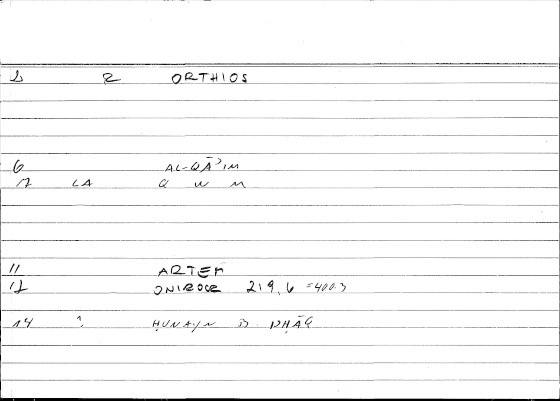 1 R ORTHIOS
6 AL-QĀʾIM
17 LA Q W M
11 ARTEM
12 ONIROCR 219,6 = 400.3
14 ḤUNAYN B